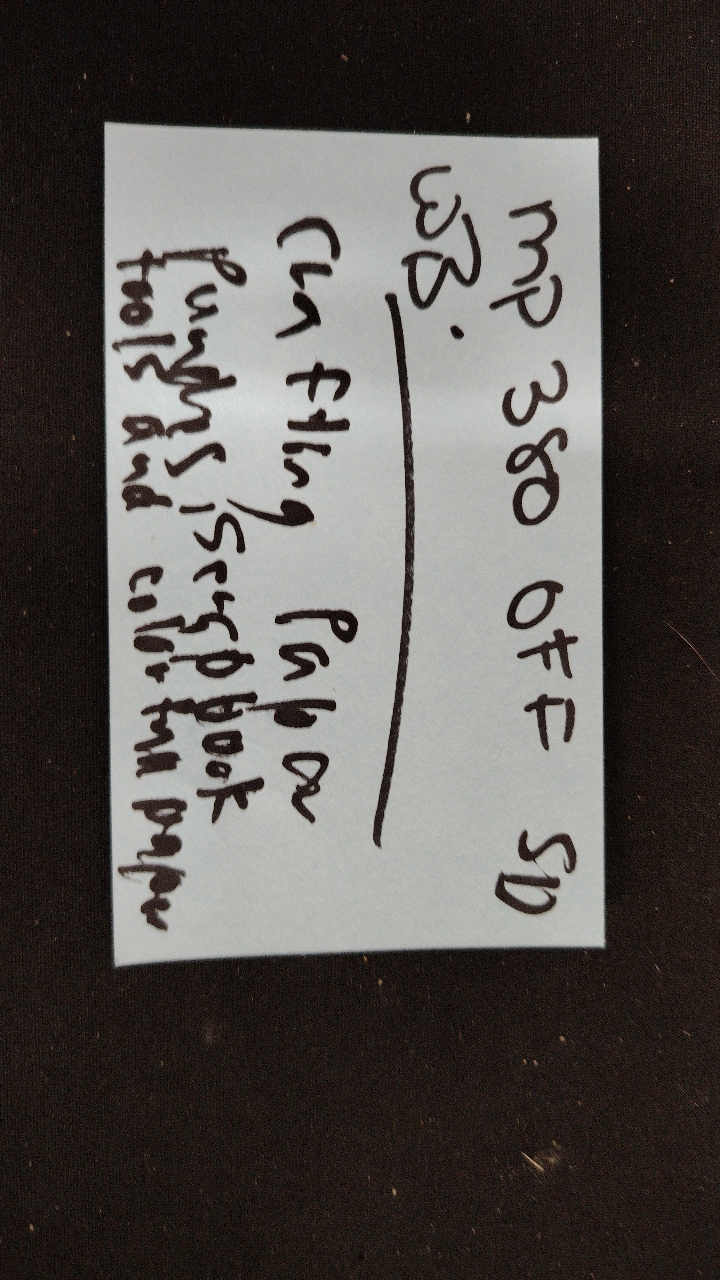 MP 380 OFF SD
WB.
Paper
Punches, Scrapbook
tools and color paper